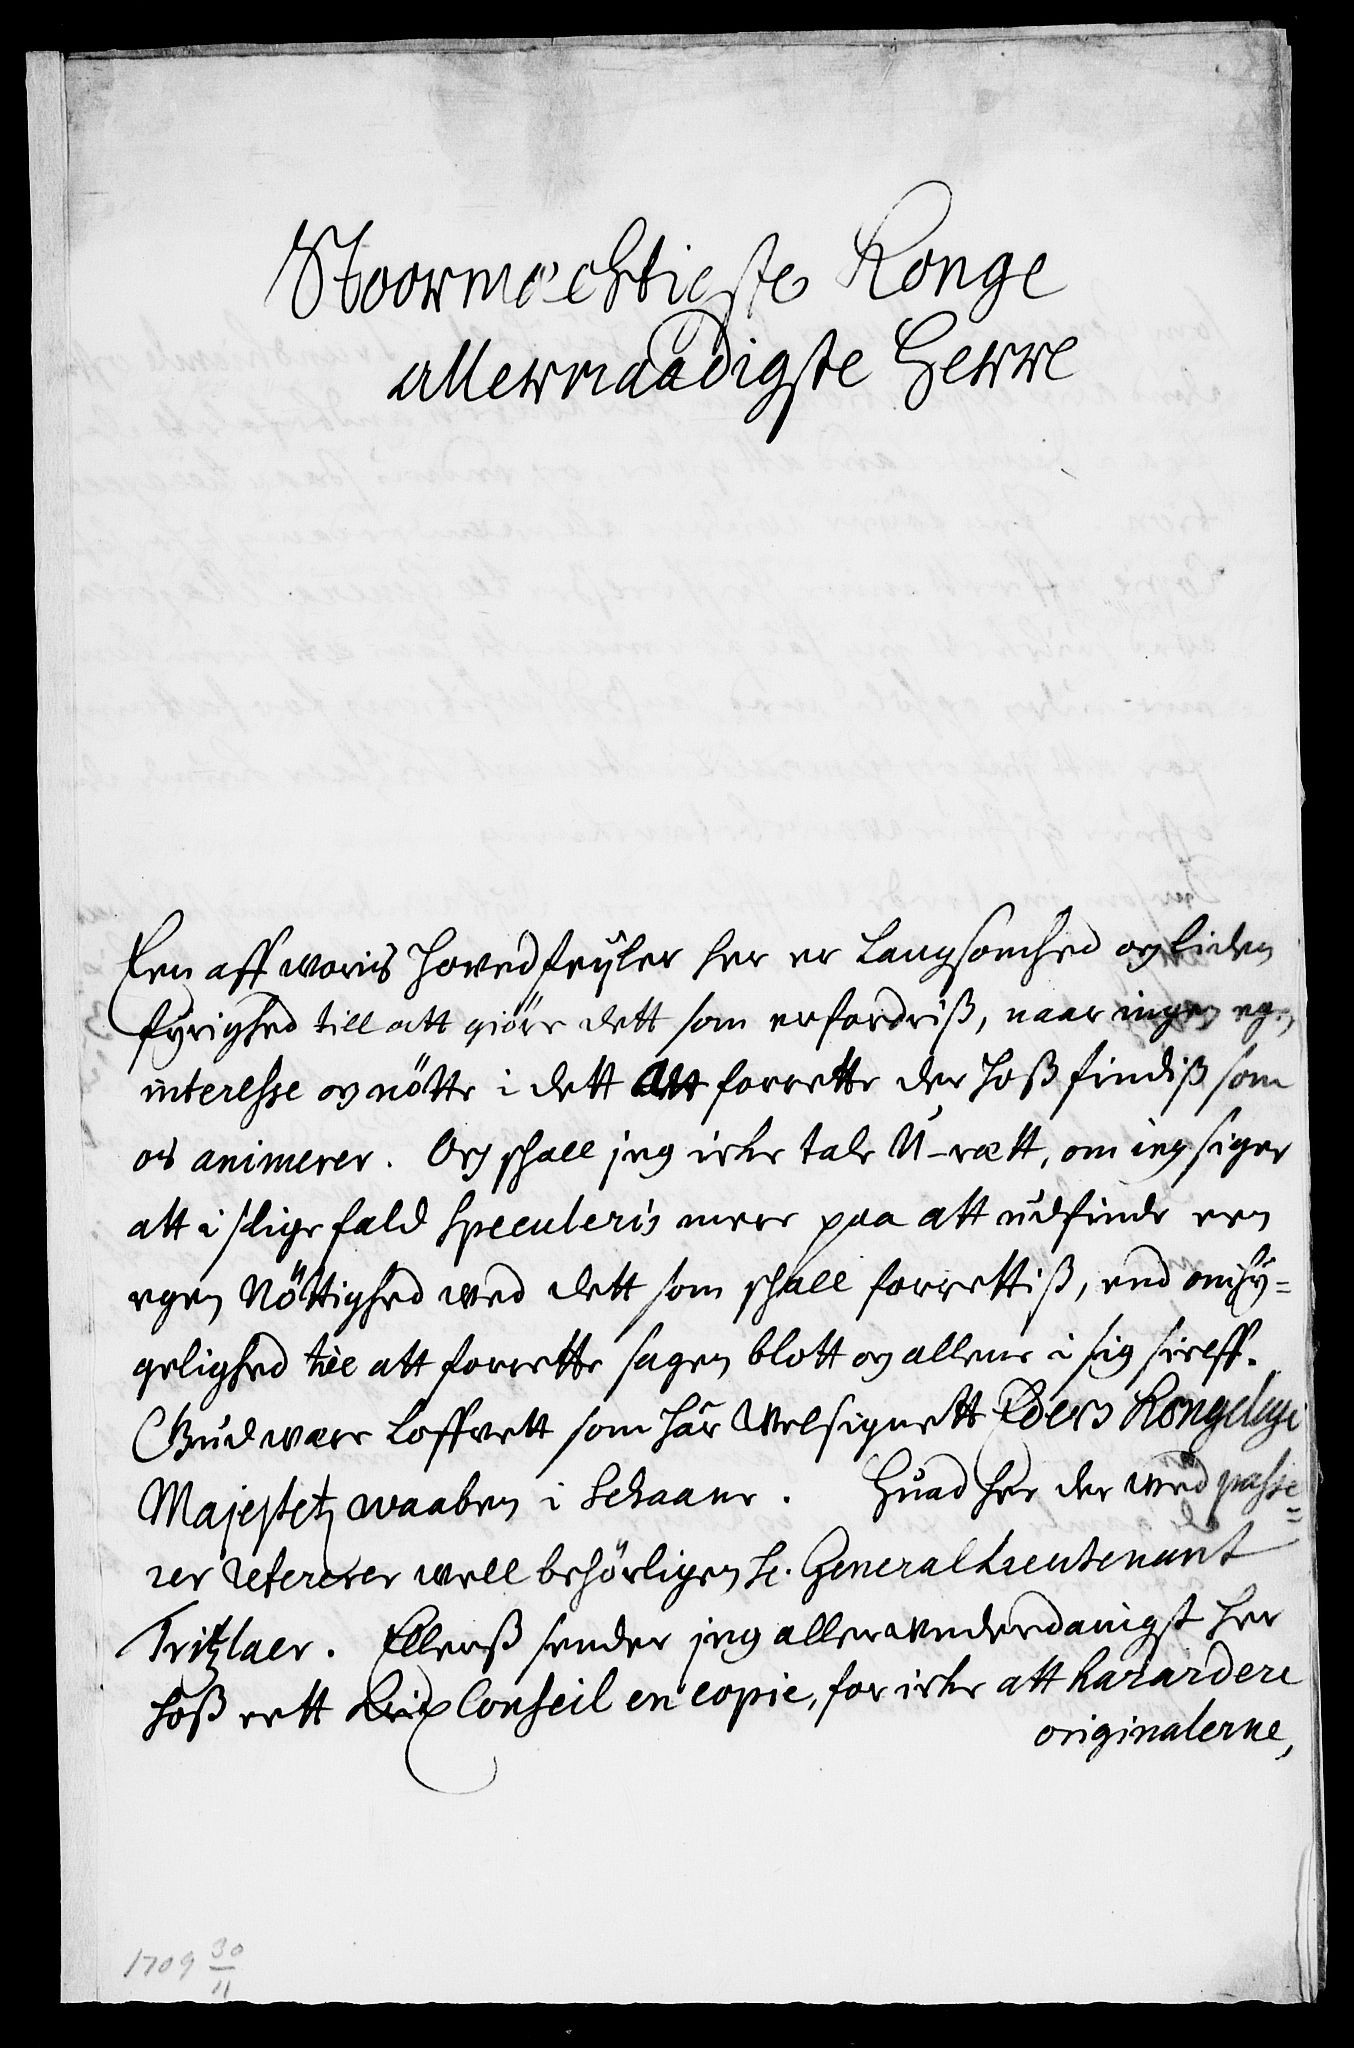 Stoormächtigste Konge
allernaadigste Herre
Een aff woris hoved feyler her er langsomhed og liden
fyrighed till att giöre dett som erfordris, naar ingen egen
interesse og nötte i dett att forrette der hoss findiss som
os animerer. Og schall jeg icke tale U-rætt, om ieg siger
att i slige fald speculeris mere paa att udfinde een
egen Nöttighed wed dett som schall forrettiss, end omhy=
gelighed till att forrette sagen blott og allene i sig sielff.
Gud være loffvett som har Velsignett Eders Kongelige
Majestetz waaben i Schaane. Huad her der wed passe=
rer refererer well behörligen H. General Lieutenant
Tritzlaer. Ellerss sender jeg allerunderdanigst her
hoss ett Krix Conseil en copie, for icke att hazardere
originalerne,
1709 30/11